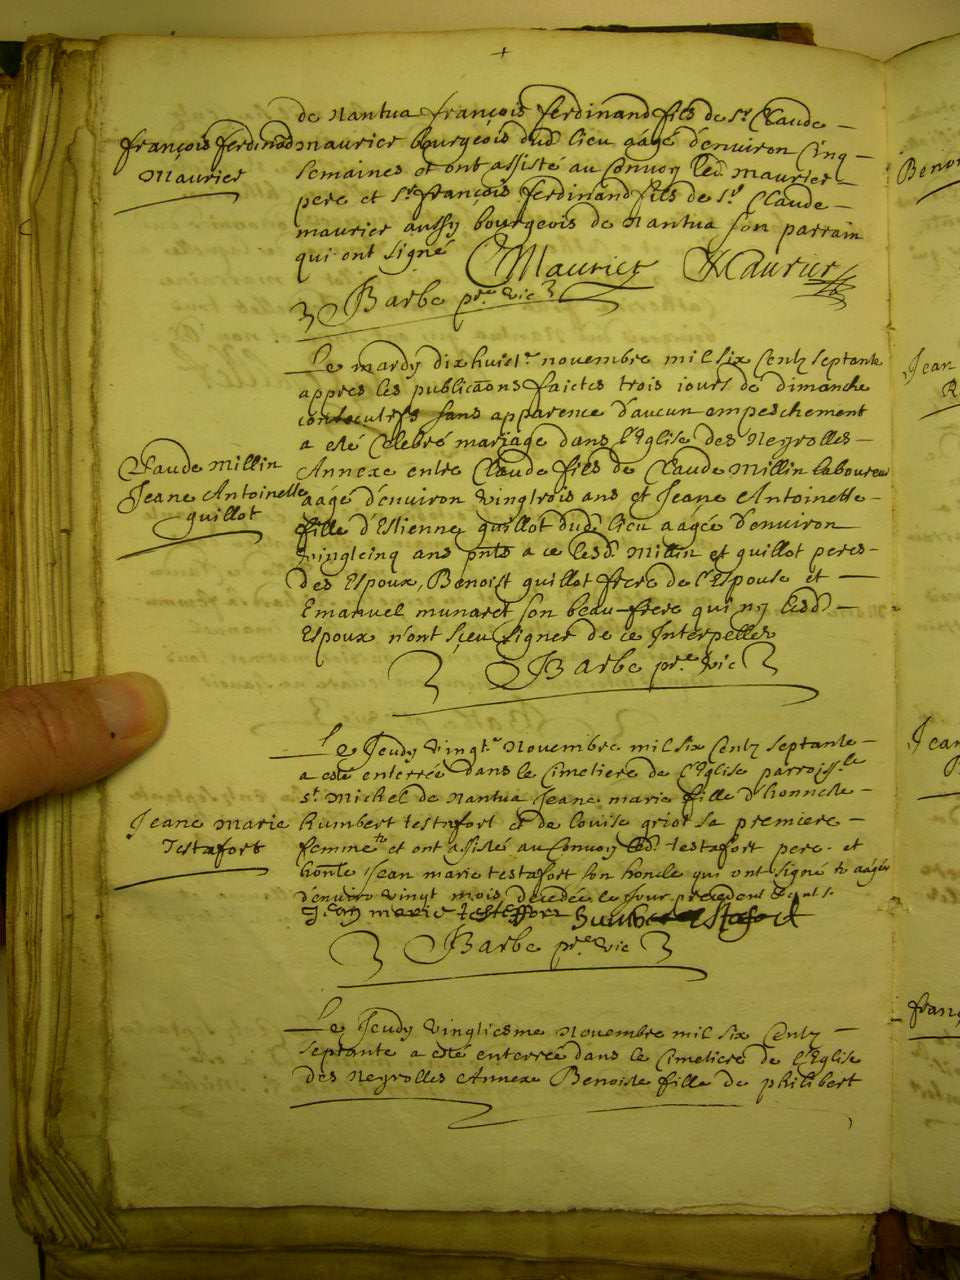 de Nantua françois ferdinand fils de Sr Claude
françois ferdinand
Maurier
maurier bourgeois dud. lieu aagé d'environ cinq
semaines et ont assisté au convoy led. maurier
pere et Sr françois ferdinand fils de Sr Claude
maurier aussy bourgeois de Nantua son parrain
qui ont signé Maurier Maurier
Barbe pre vic
Le mardy dix huict novembre mil six centz septante
appres les publicaons faictes trois jours de dimanche
consecutifs sans apparence d'aucun empeschement
a esté celebré mariage dans l'Eglise des Neyrolles
Claude Millin
Jeane Antoinette
guillot
Annexe entre Claude fils de Claude Millin laboureur
aagé d'environ vingtrois ans et Jeane Antoinette
fille d'Estienne guillot dud. lieu aagée d'environ
vingtcinq ans pnts a ce lesd. Millin et guillot peres
des Espoux, Benoist guillot frere de l'Espouse et
Emanuel munaret son beau-frere qui ny lesd.
Espoux n'ont sçeu signer de ce Interpellés
Barbe pre vic
Le Jeudy vingt Novembre mil six centz septante
a esté enterrée dans le cimetiere de l'Eglise parroiss.le
St Michel de Nantua Jeane marie fille d'honneste
Jeane Marie
Testafort
humbert testafort et de louise griot sa premiere
femme et ont assisté au convoy led. testafort pere et
honle Jean marie testafort son honcle qui ont signé aagée
d'enviro vingt mois decedée le jour precedent
Jean marie testafort humbert testafort
Barbe pre vic
Le Jeudy vingtiesme Novembre mil six centz
septante a esté enterrée dans le cimetiere de l'Eglise
des Neyrolles Annexe Benoiste fille de philibert
Jean
Jean